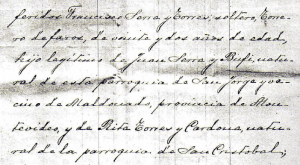 feridos Francisco Serra y Torres, soltero, Torre-
ro de faros, de veinte y dos años de edad,
hijo legítimo de Juan Serra y Bufí, natu-
ral de esta parroquia de San Jorge y ve-
cino de Maldonado, provincia de Mon-
tevideo, y de Rita Torres y Cardona, natu-
ral de la parroquia de San Cristobal;